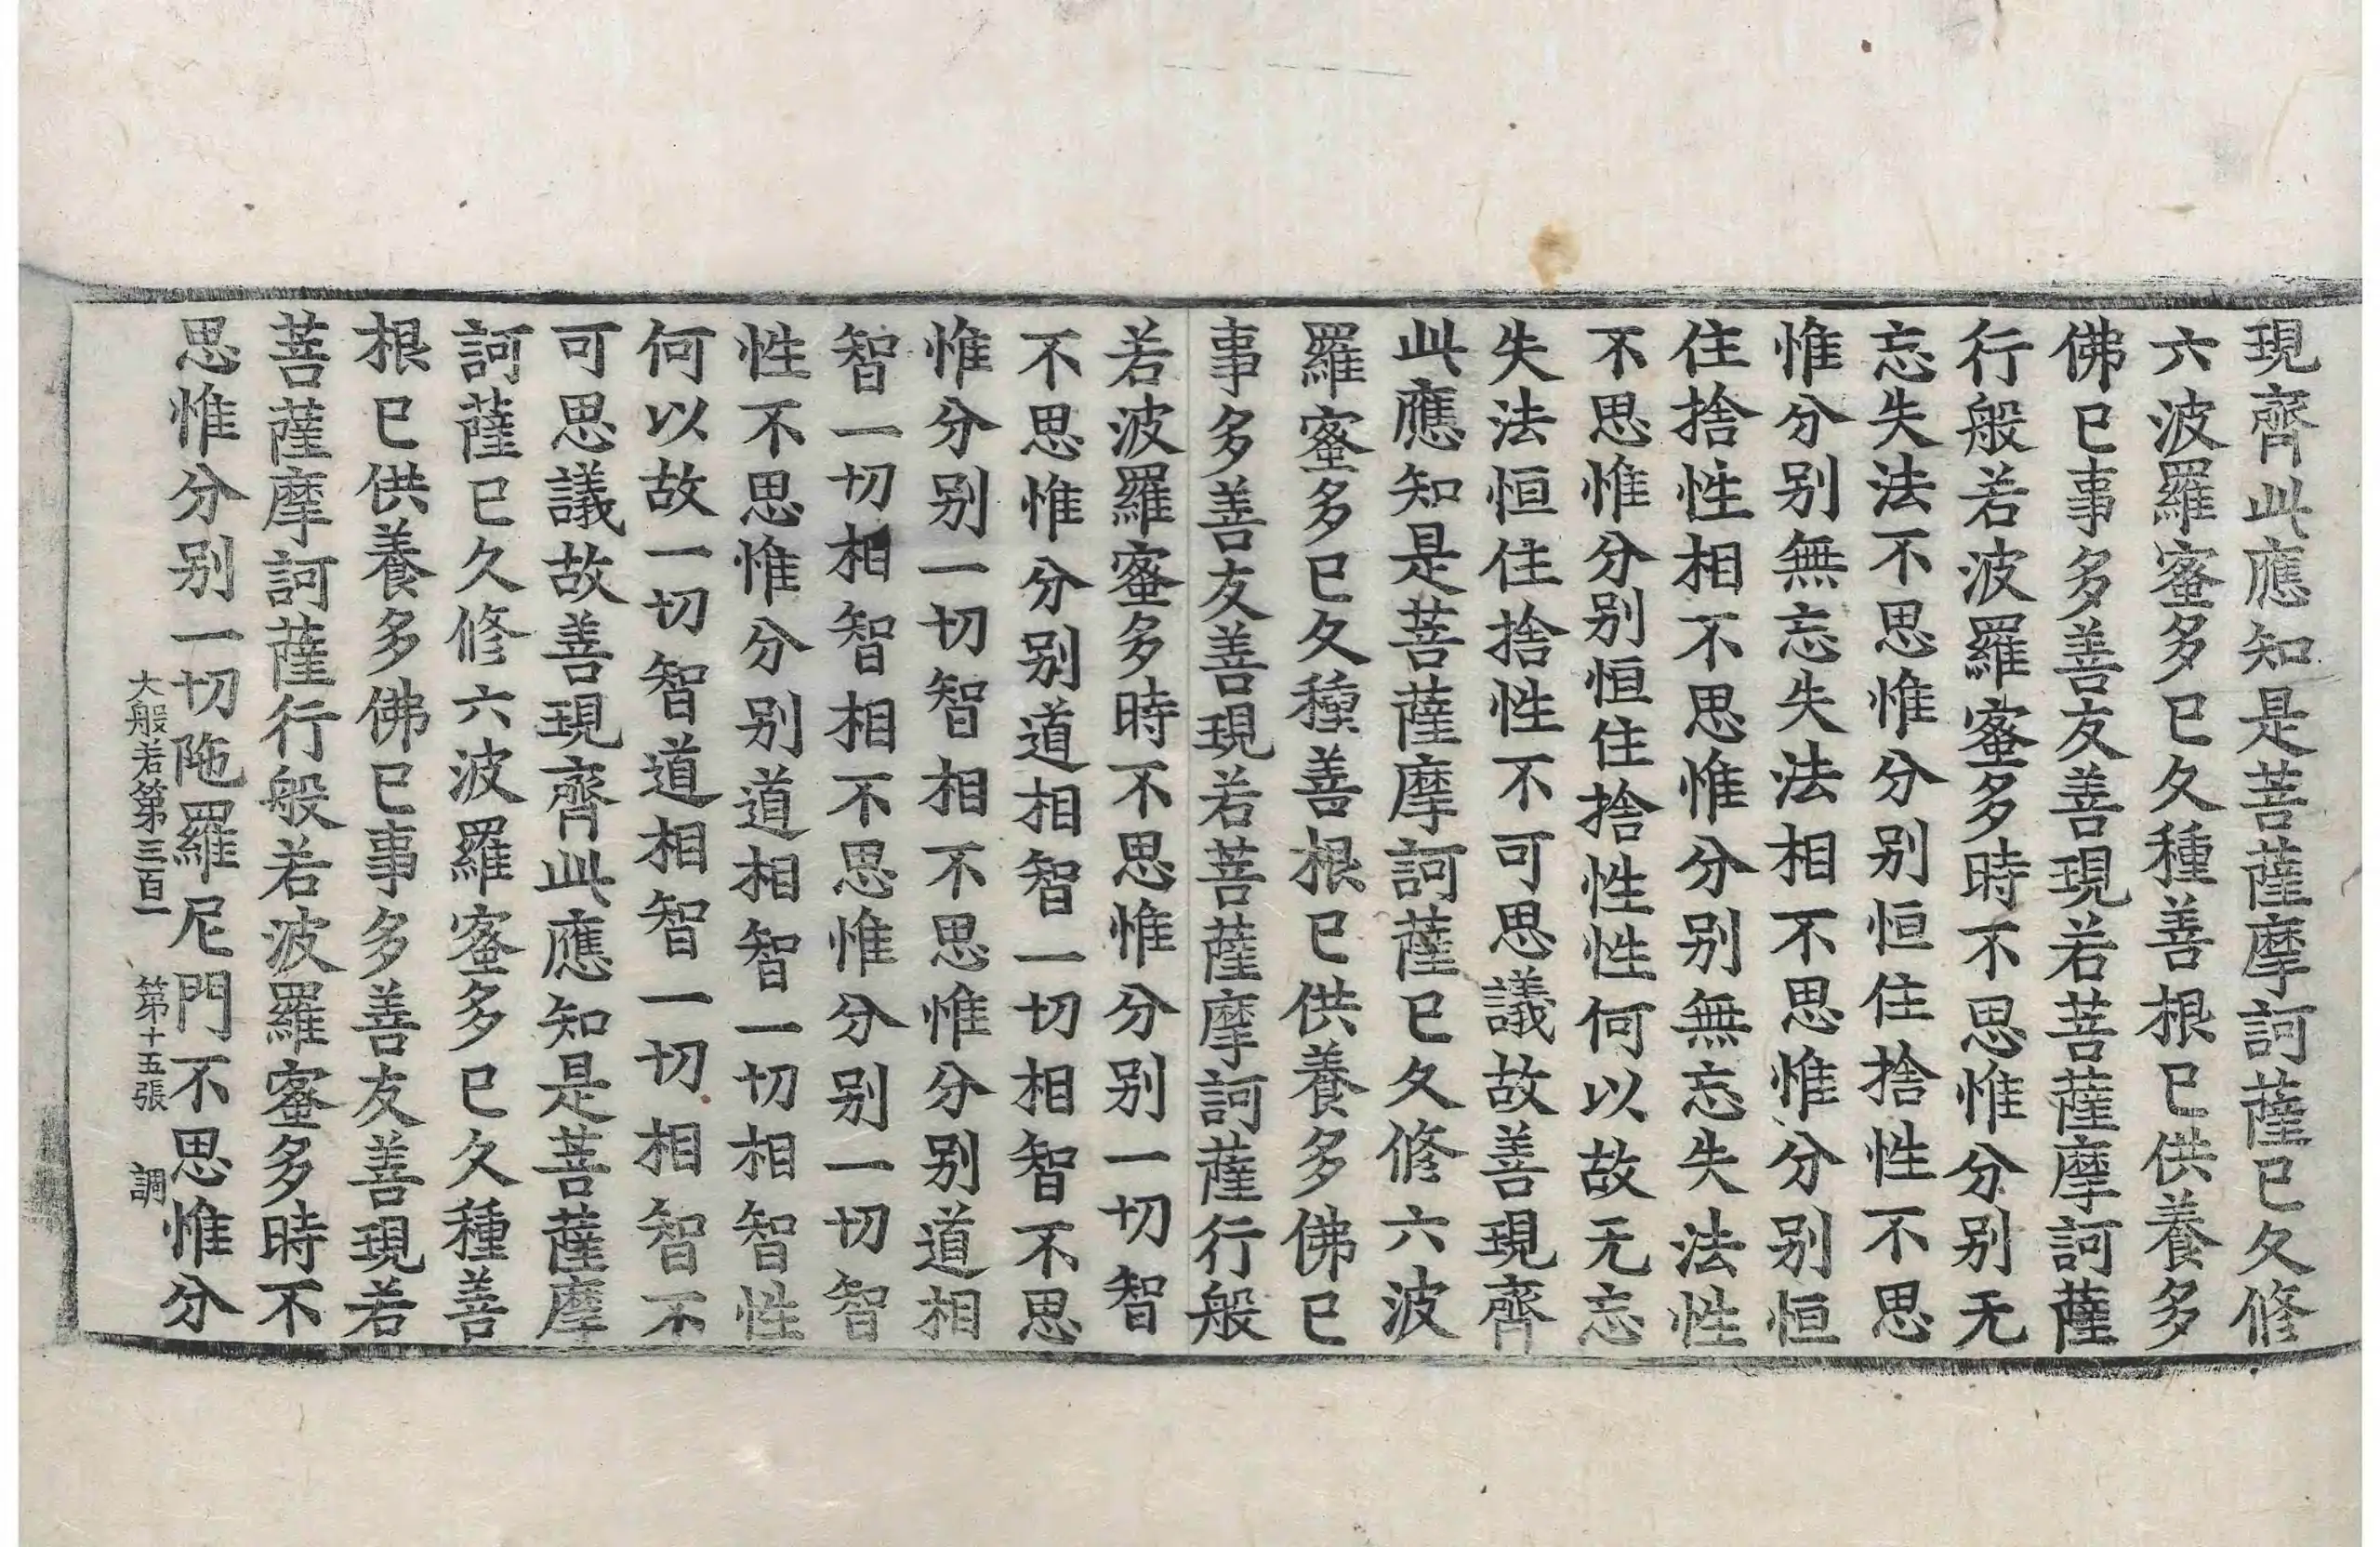 現齊此應知是菩薩摩訶薩已久修
六波羅蜜多已久種善根已供養多
佛已事多善友善現若菩薩摩訶薩
行般若波羅蜜多時不思惟分别无
忘失法不思惟分别恒住捨性不思
惟分别無忘失法相不思惟分别恒
住捨性相不思惟分别無忘失法性
不思惟分别恒住捨性性何以故无忘
失法恒住捨性不可思議故善現齊
此應知是菩薩摩訶薩已久修六波
羅蜜多已久種善根已供養多佛已
事多善友善現若菩薩摩訶薩行般
若波羅蜜多時不思惟分别一切智
不思惟分别道相智一切相智不思
惟分别一切智相不思惟分别道相
智一切相智相不思惟分别一切智
性不思惟分别道相智一切相智性
何以故一切智道相智一切相智不
可思議故善現齊此應知是菩薩摩
訶薩已久修六波羅蜜多已久種善
根已供養多佛已事多善友善現若
菩薩摩訶薩行般若波羅蜜多時不
思惟分别一切陁羅尼門不思惟分
大般若第三百一 第十五張 調